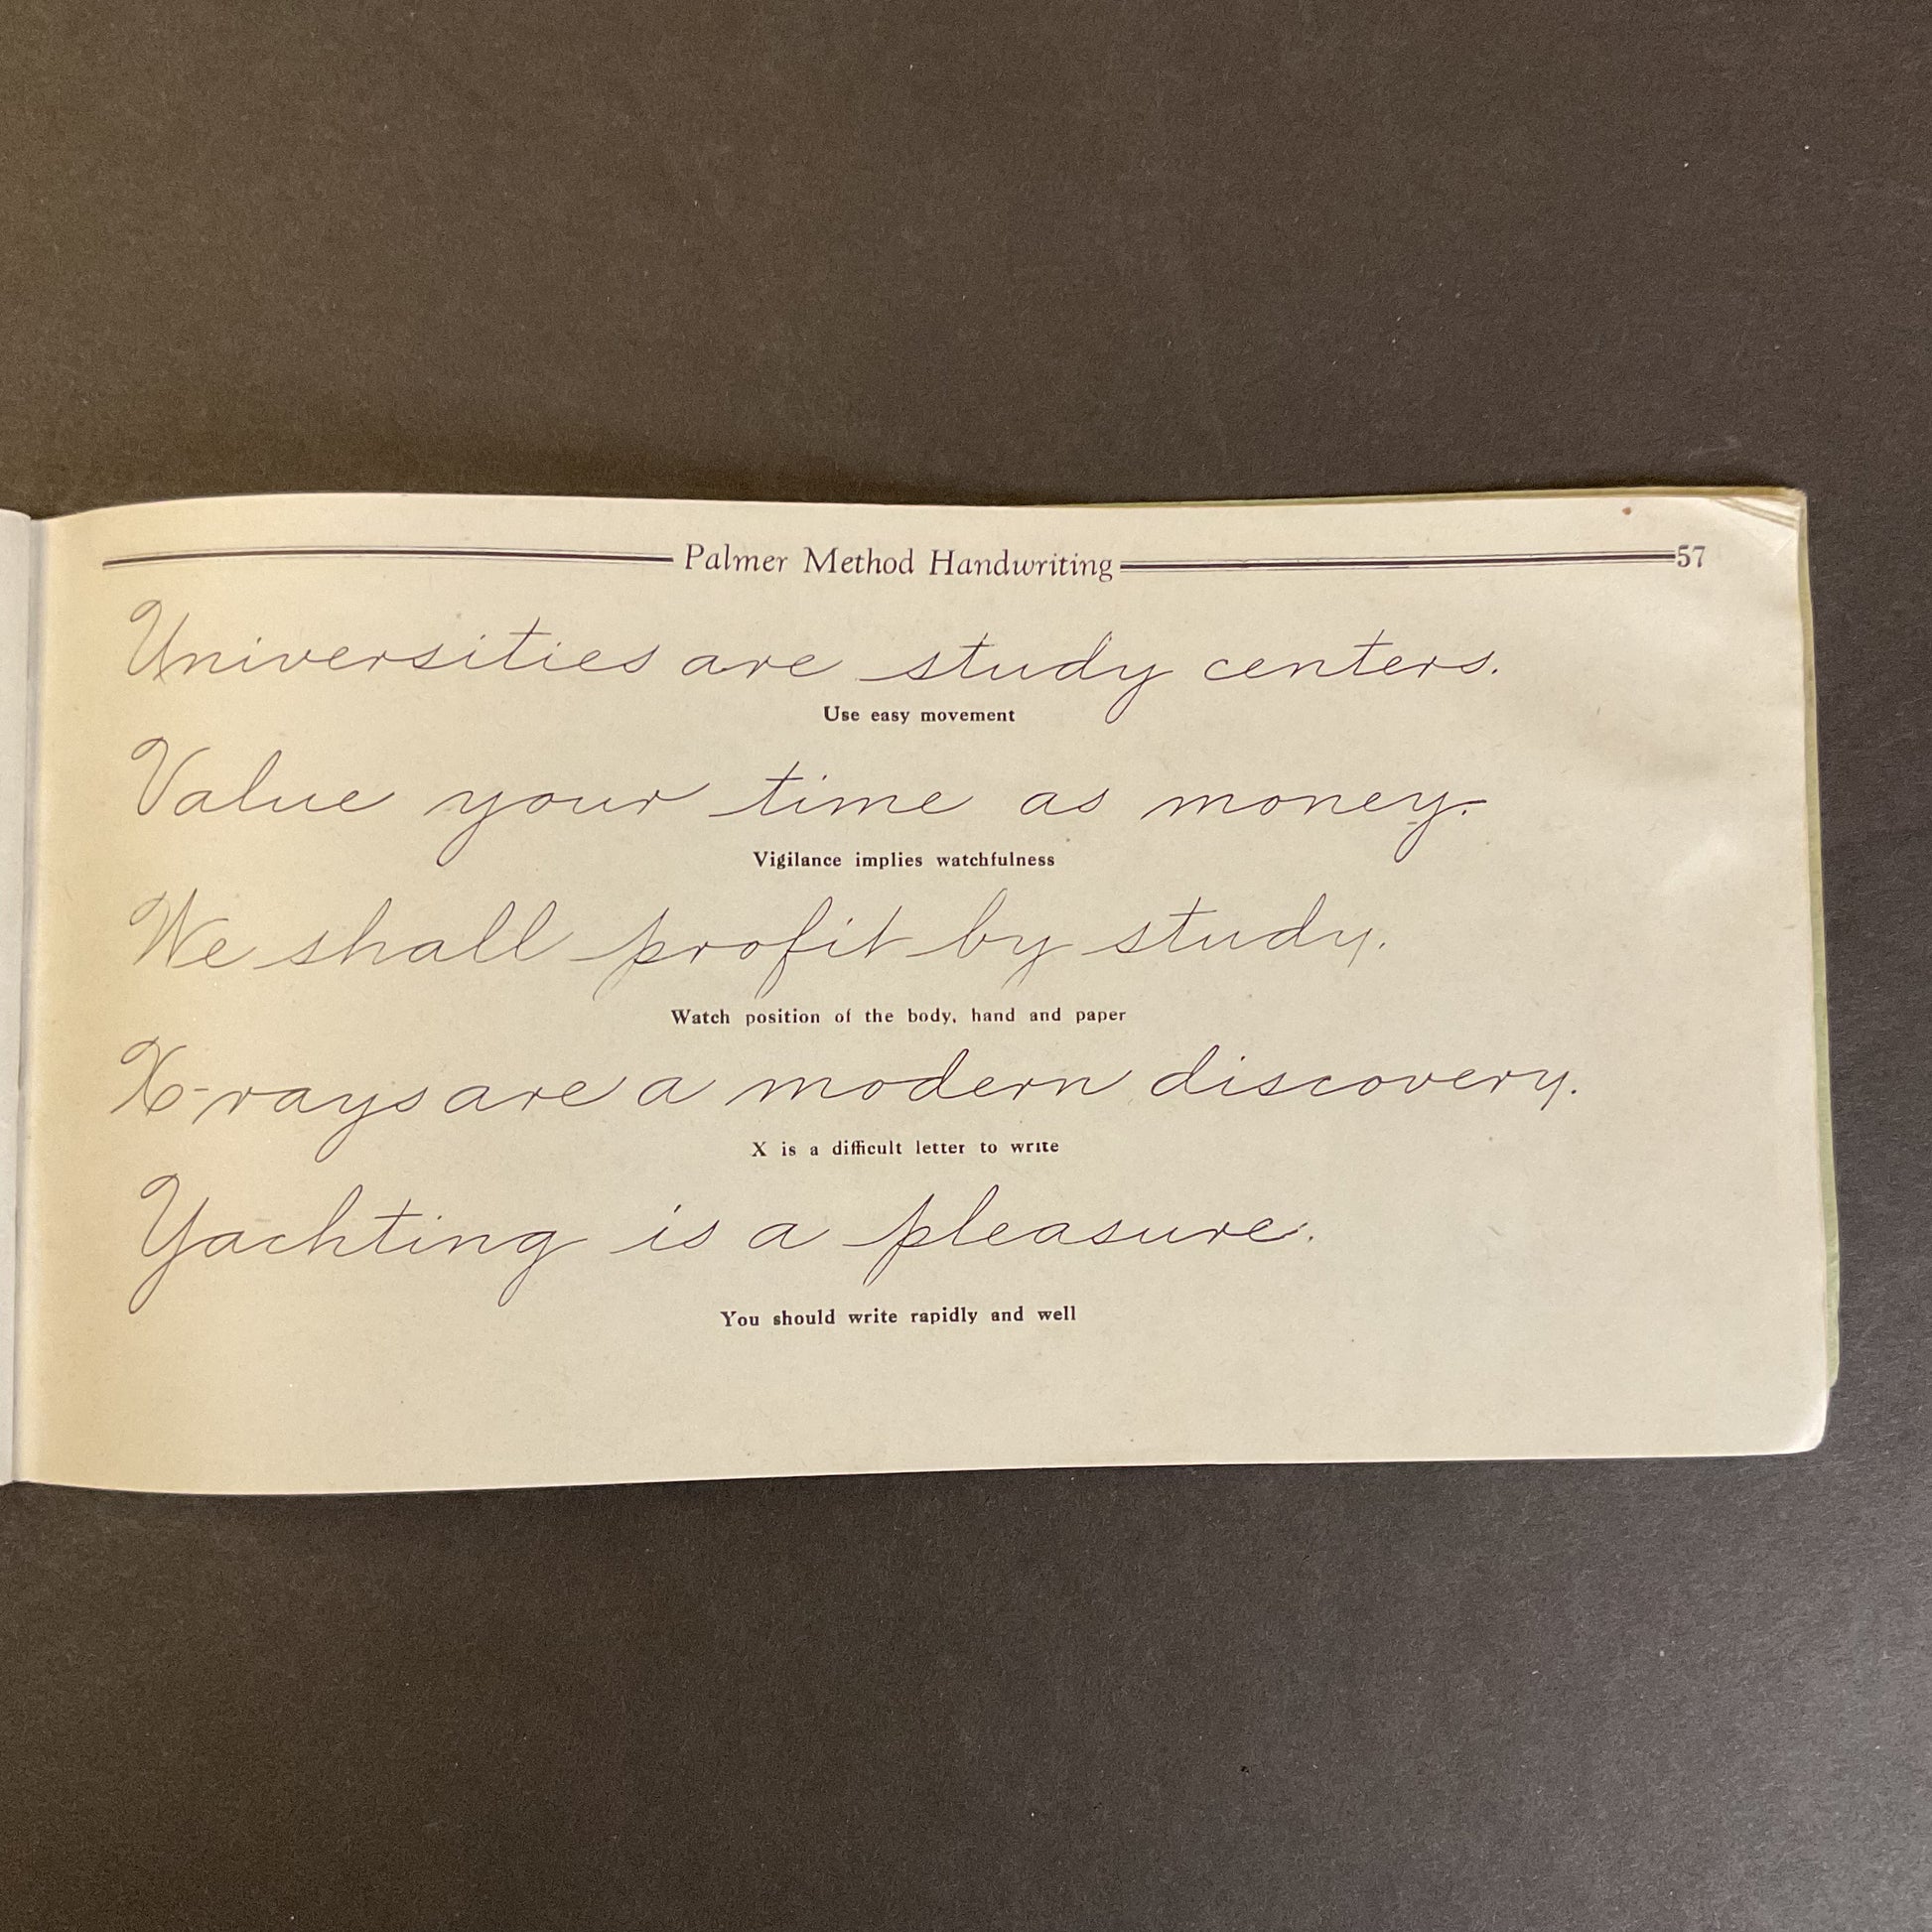 Palmer Method Handwriting 57
Universities are study centers.
Use easy movement
Value your time as money.
Vigilance implies watchfulness
We shall profit by study.
Watch position of the body, hand and paper
X-rays are a modern discovery.
X is a difficult letter to write
Yachting is a pleasure.
You should write rapidly and well